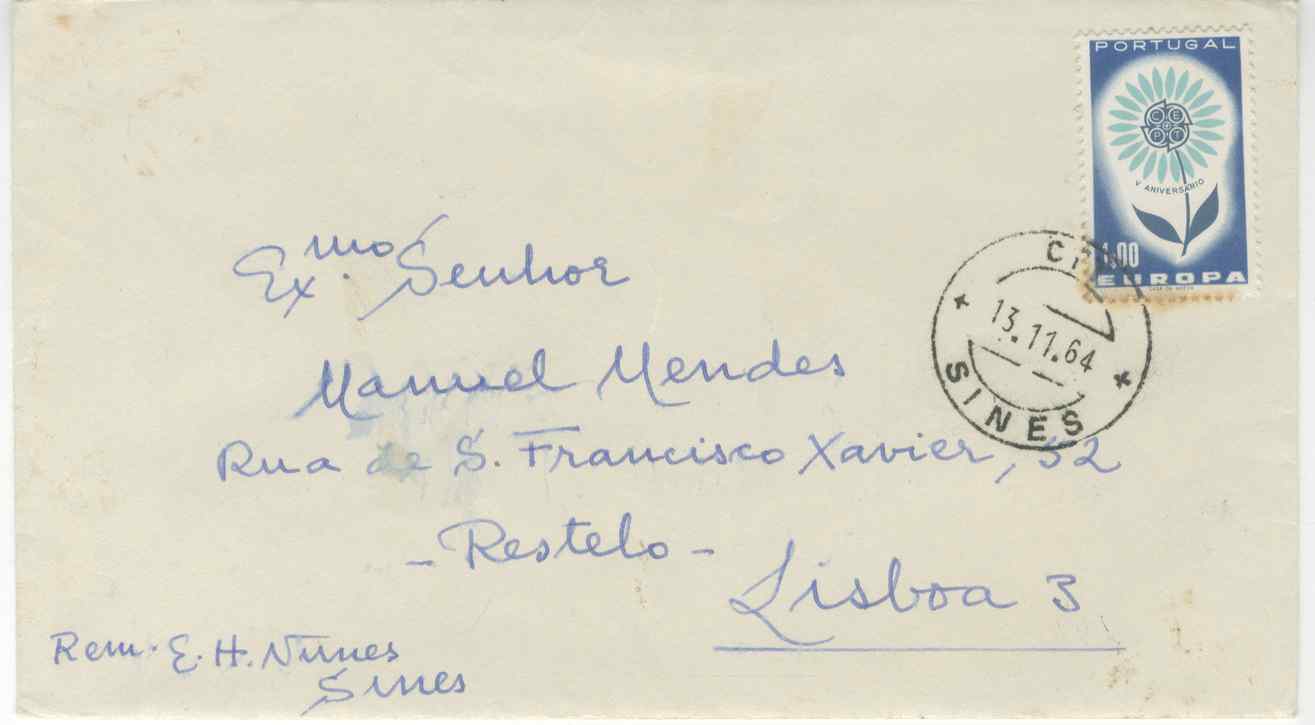 PORTUGAL
CEPT
V ANIVERSÁRIO
1.00
EUROPA
CASA DA MOEDA
13.11.64
SINES
Exmo. Senhor
Manuel Mendes
Rua de S. Francisco Xavier, 52
- Restelo -
Lisboa 3
Rem. E. H. Nunes
Sines